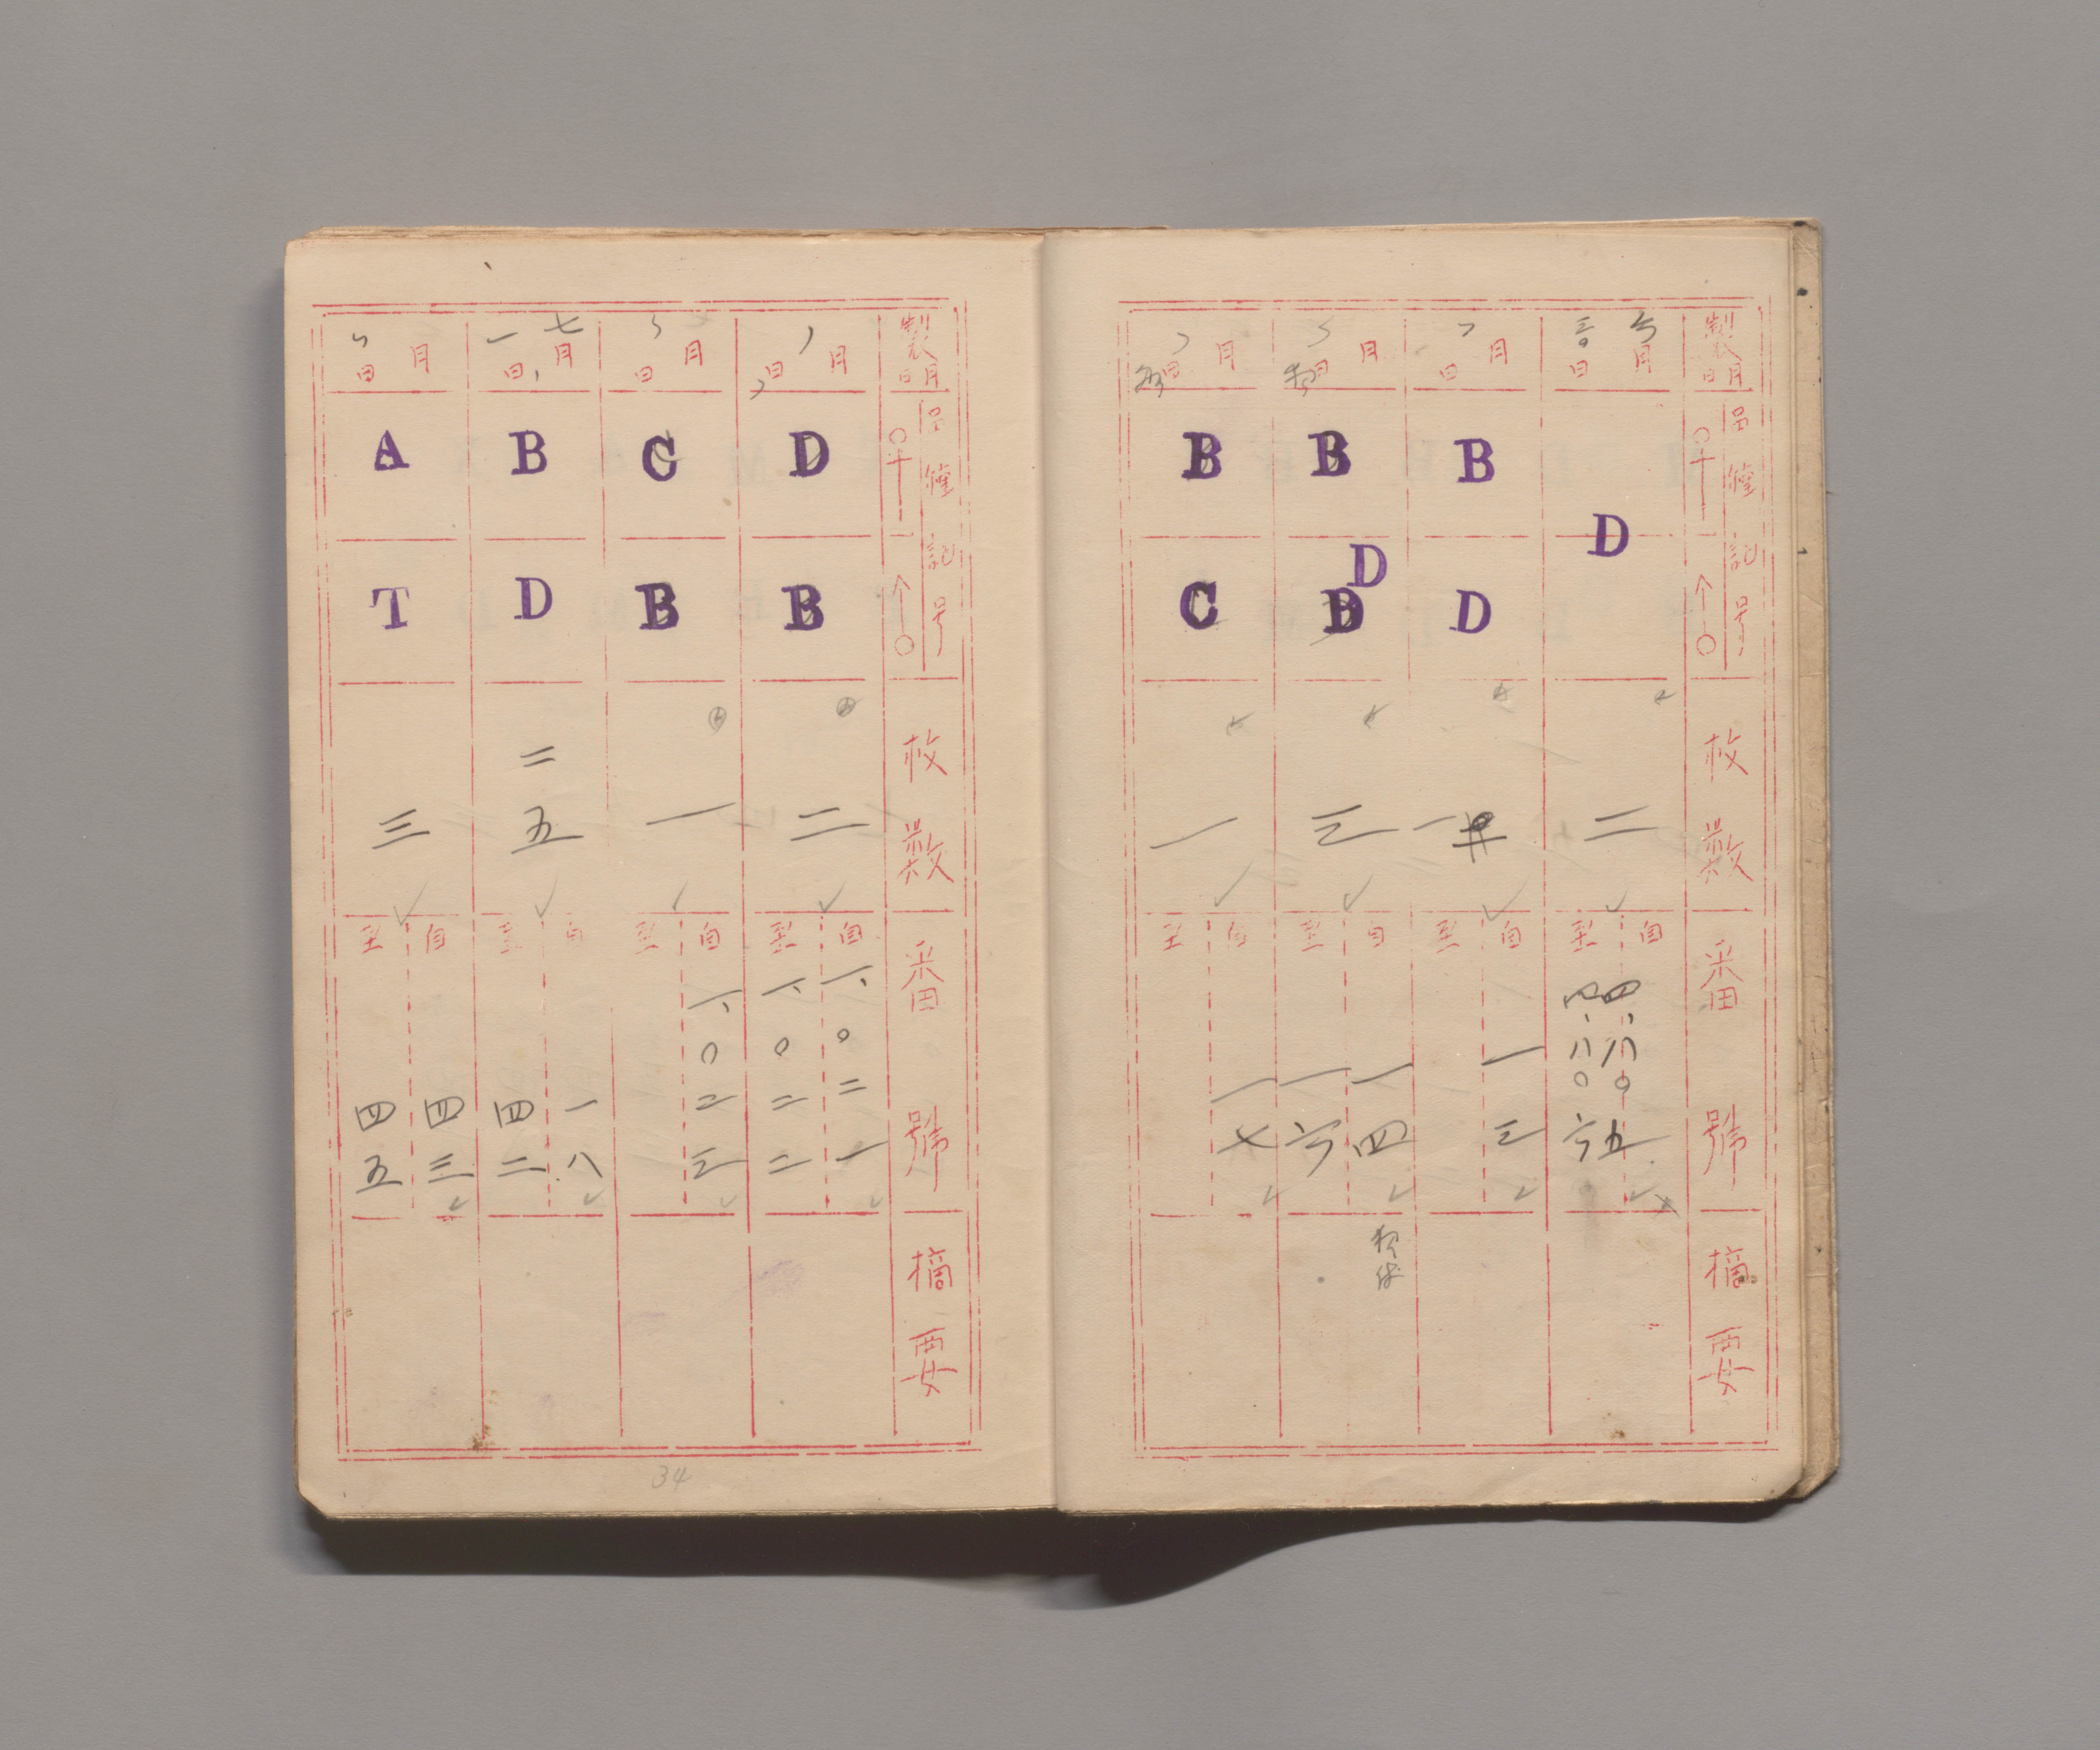 製月日
品種記号
枚数
番號
摘要
六月三〇日
D
二
自 四、八〇五
至 四、八〇六
月日
B
D
一
自 一三
至
月日
B
D
D
三
自 一四
至 一六
月日
B
C
一
自 一七
至
製月日
品種記号
枚数
番號
摘要
月日
D
B
二
自 一、〇二一
至 一、〇二二
月日
C
B
一
自 一、〇二三
至
七月一日
B
D
二五
自 一八
至 四二
月日
A
T
三
自 四三
至 四五
34